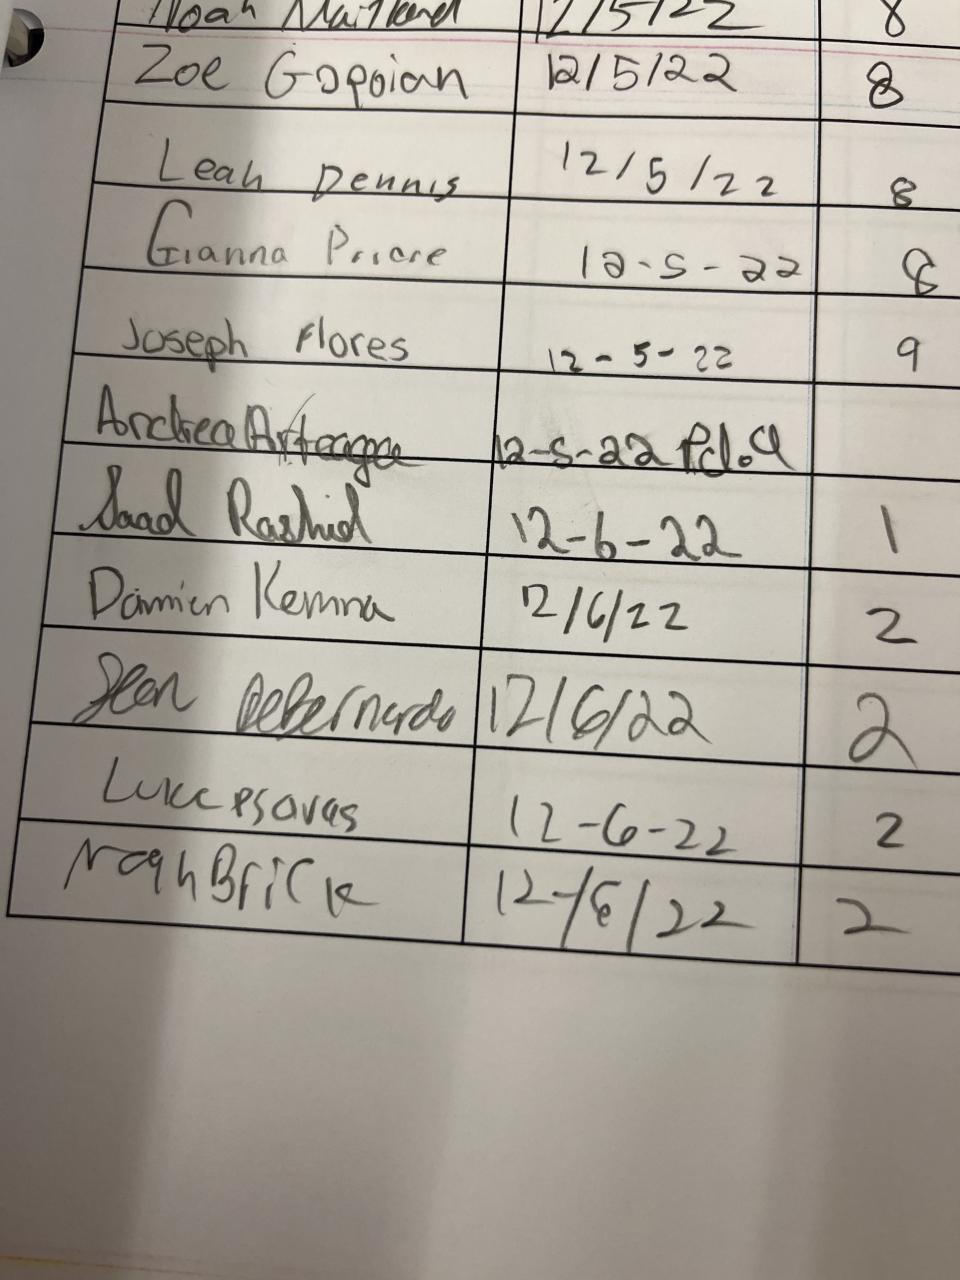 Noah Maitland 12/5/22 8
Zoe Gopoian 12/5/22 8
Leah Dennis 12/5/22 8
Gianna Priore 12-5-22 8
Joseph Flores 12-5-22 9
Andrea Arteaga 12-5-22 Pd.9
Saad Rashid 12-6-22 1
Damien Kemna 12/6/22 2
Sean DeBernardo 12/6/22 2
Luke 12-6-22 2
Noah Brick 12-/6/22 2